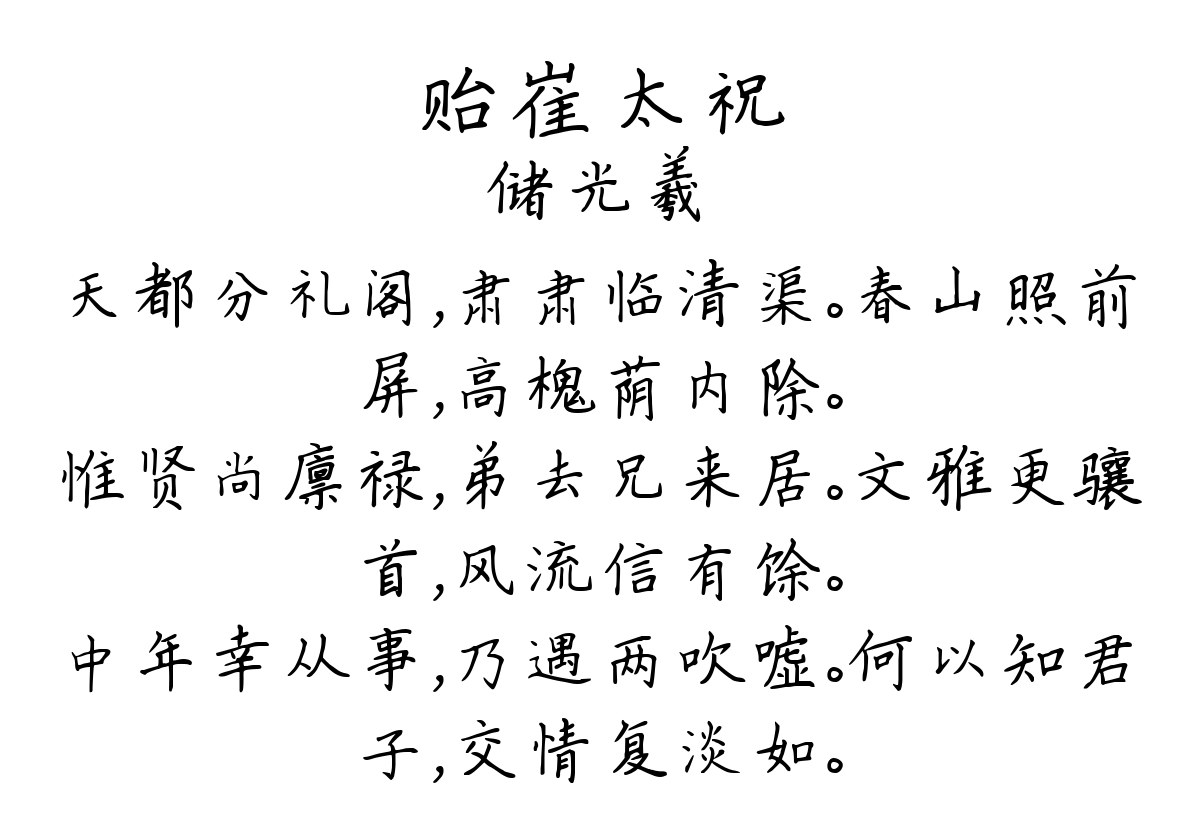 贻崔太祝
储光羲
天都分礼阁,肃肃临清渠。春山照前
屏,高槐荫内除。
惟贤尚廪禄,弟去兄来居。文雅更骧
首,风流信有馀。
中年幸从事,乃遇两吹嘘。何以知君
子,交情复淡如。